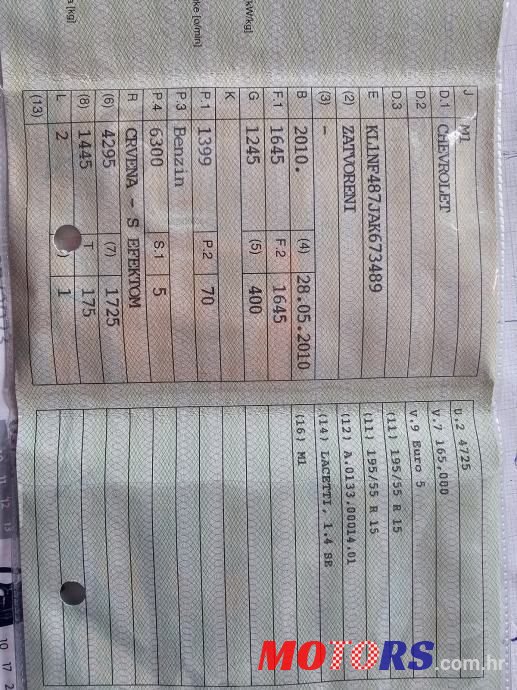 kW/kg]
[o/min]
[kg]
J M1
D.1 CHEVROLET
D.2
D.3
E KL1NF487JAK673489
(2) ZATVORENI
(3) -
B 2010. (4) 28.05.2010
F.1 1645 F.2 1645
G 1245 (5) 400
K
P.1 1399 P.2 70
P.3 Benzin
P.4 6300 S.1 5
R CRVENA - S EFEKTOM
(6) 4295 (7) 1725
(8) 1445 T 175
L 2 1
(13)
U.2 4725
V.7 165,000
V.9 Euro 5
(11) 195/55 R 15
(11) 195/55 R 15
(12) A.0133.00014.01
(14) LACETTI, 1.4 SE
(16) M1
10 11 12 13
10 17 2
MOTORS.com.hr